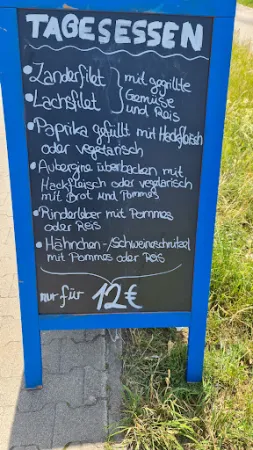 TAGESESSEN
• Zanderfilet } mit gegrillte
• Lachsfilet } Gemüse und Reis
• Paprika gefüllt mit Hackfleisch
oder vegetarisch
• Aubergine überbacken mit
Hackfleisch oder vegetarisch
mit Brot und Pommes
• Rinderleber mit Pommes
oder Reis
• Hähnchen-/Schweineschnitzel
mit Pommes oder Reis
nur für 12€